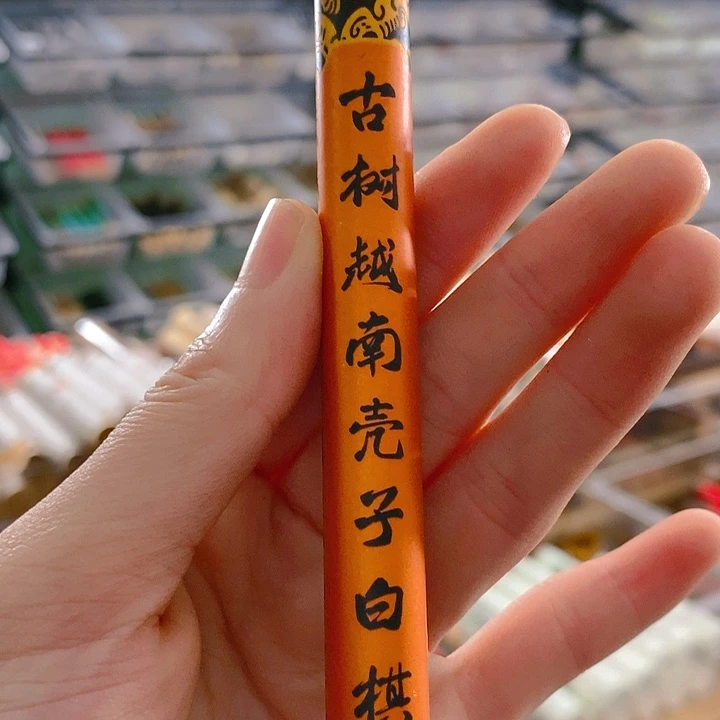 古树越南壳子白棋